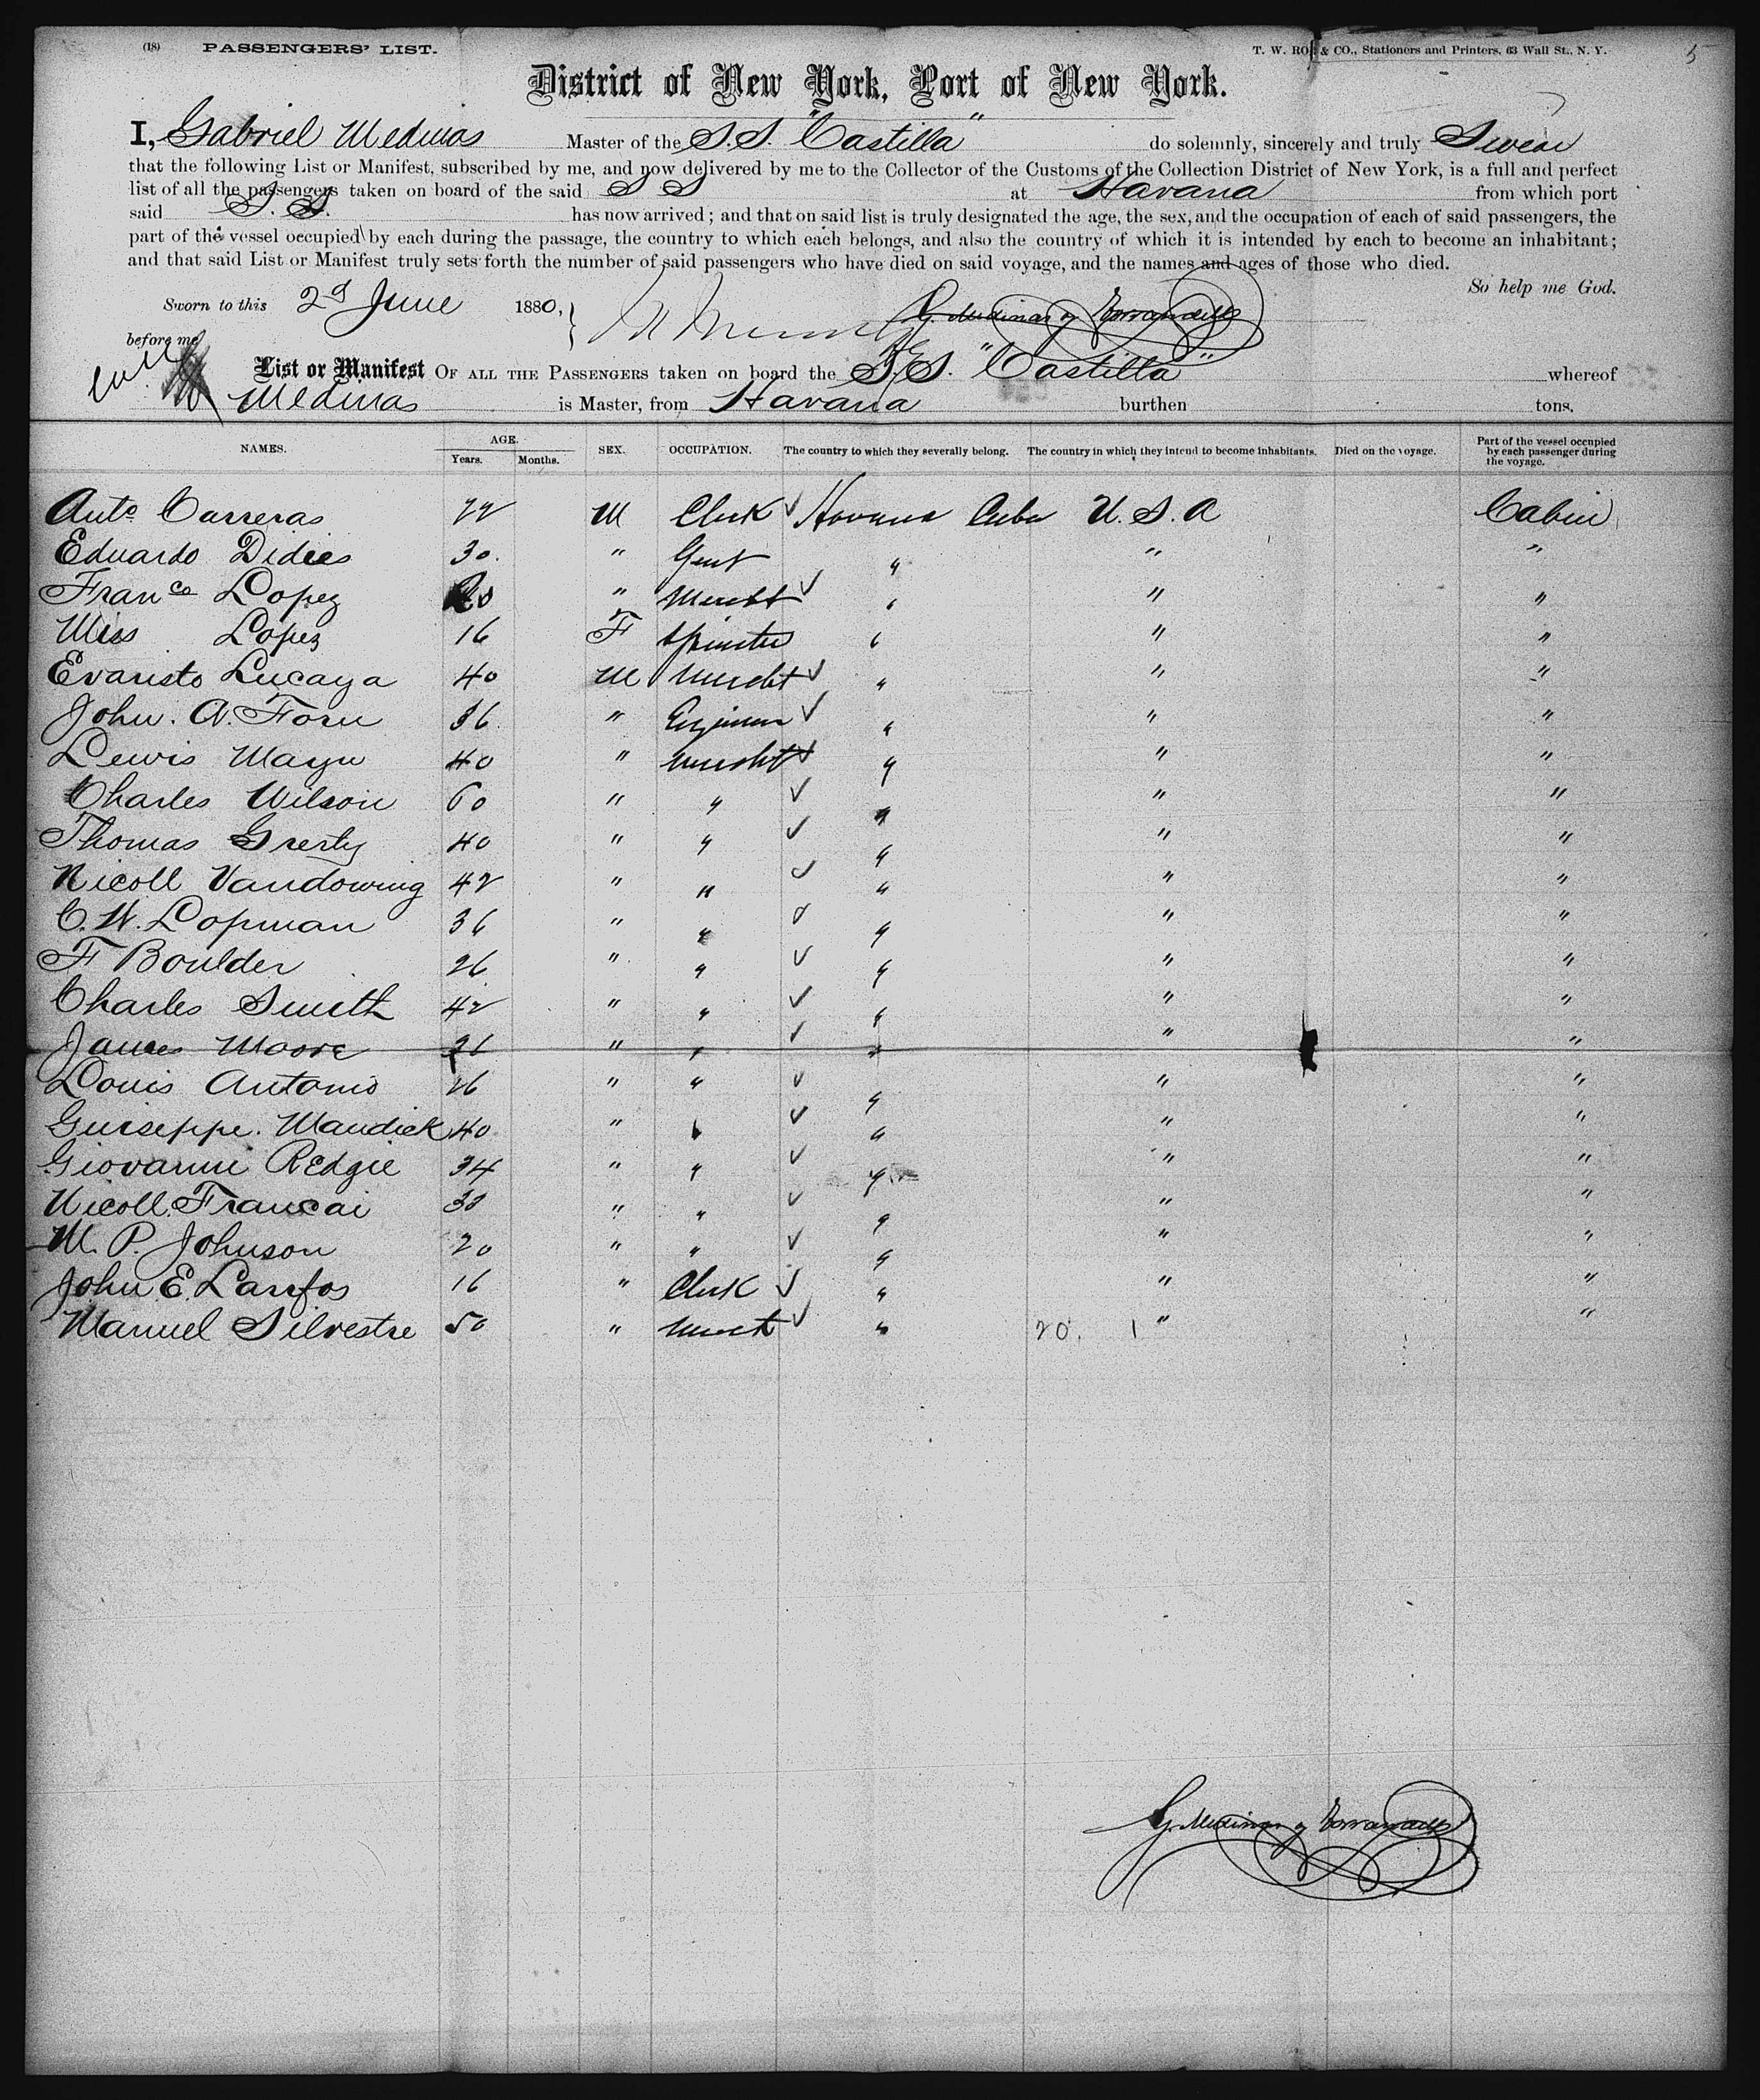 (18) PASSENGERS' LIST. T. W. ROE & CO., Stationers and Printers, 63 Wall St., N. Y. 5
District of New York, Port of New York.
I, Gabriel Medinas Master of the S.S. "Castilla" do solemnly, sincerely and truly Swear
that the following List or Manifest, subscribed by me, and now delivered by me to the Collector of the Customs of the Collection District of New York, is a full and perfect
list of all the passengers taken on board of the said S S at Havana from which port
said S. S. has now arrived; and that on said list is truly designated the age, the sex, and the occupation of each of said passengers, the
part of the vessel occupied by each during the passage, the country to which each belongs, and also the country of which it is intended by each to become an inhabitant;
and that said List or Manifest truly sets forth the number of said passengers who have died on said voyage, and the names and ages of those who died.
So help me God.
Sworn to this 2d June 1880, G. Medinas y
before me
List or Manifest OF ALL THE PASSENGERS taken on board the S.S. "Castilla" whereof
Medinas is Master, from Havana burthen tons,
NAMES. AGE. Years. Months. SEX. OCCUPATION. The country to which they severally belong. The country in which they intend to become inhabitants. Died on the voyage. Part of the vessel occupied by each passenger during the voyage.
Anto Carreras 22 M Clerk ✓ Havana Cuba U. S. A Cabin
Eduardo Didies 30 " Gent " " "
Franco Lopez " Mercht ✓ " " "
Miss Lopez 16 F Spinster " " "
Evaristo Lucaya 40 M Mercht ✓ " " "
John. A. Forn 36 " Engineer ✓ " " "
Lewis Mayn 40 " Mercht ✓ " " "
Charles Wilson 60 " " ✓ " " "
Thomas Gresty 40 " " ✓ " " "
Nicoll Vandowing 42 " " ✓ " " "
C. W. Lopman 36 " " ✓ " " "
F Boulder 26 " " ✓ " " "
Charles Smith 42 " " ✓ " " "
James Moore " " ✓ " " "
Louis Antonio 26 " " ✓ " " "
Guiseppe. Mandick 40 " " ✓ " " "
Giovanni Redgie 34 " " ✓ " " "
Nicoll. Francai " " ✓ " " "
M. P. Johnson 20 " " ✓ " " "
John E. Lanfos 16 " Clerk ✓ " " "
Manuel Silvestre 50 " Mercht ✓ " 20. 1 " "
G. Medinas y